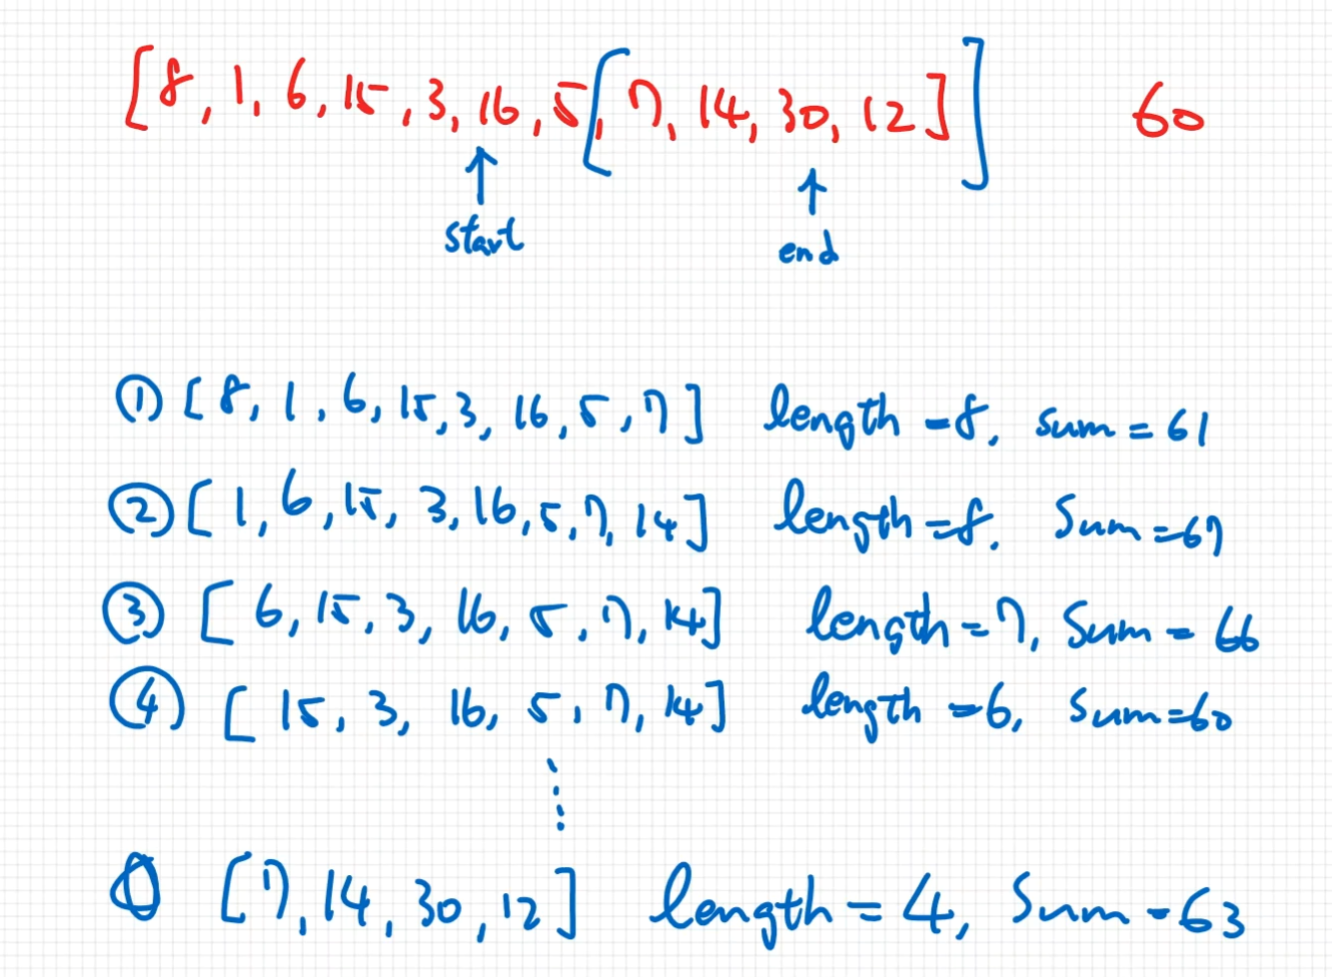 [8, 1, 6, 15, 3, 16, 5, [7, 14, 30, 12]] 60
start end
① [8, 1, 6, 15, 3, 16, 5, 7] length = 8, sum = 61
② [1, 6, 15, 3, 16, 5, 7, 14] length = 8. Sum = 67
③ [6, 15, 3, 16, 5, 7, 14] length = 7, Sum = 66
④ [15, 3, 16, 5, 7, 14] length = 6, Sum = 60
⋮
[7, 14, 30, 12] length = 4, Sum = 63